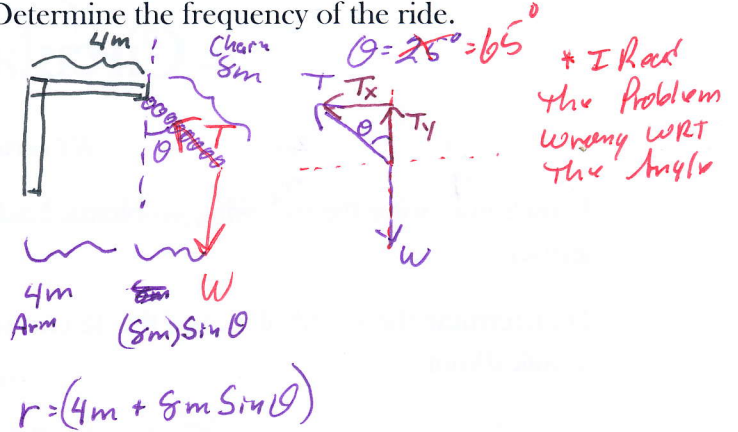 Determine the frequency of the ride.
4m
Chain
8m
θ = 25° = 65°
* I Read
the Problem
wrong WRT
the Angle
T
Tx
Ty
θ
W
T
θ
W
4m
Arm
(8m) Sin θ
r = (4m + 8m Sin θ)